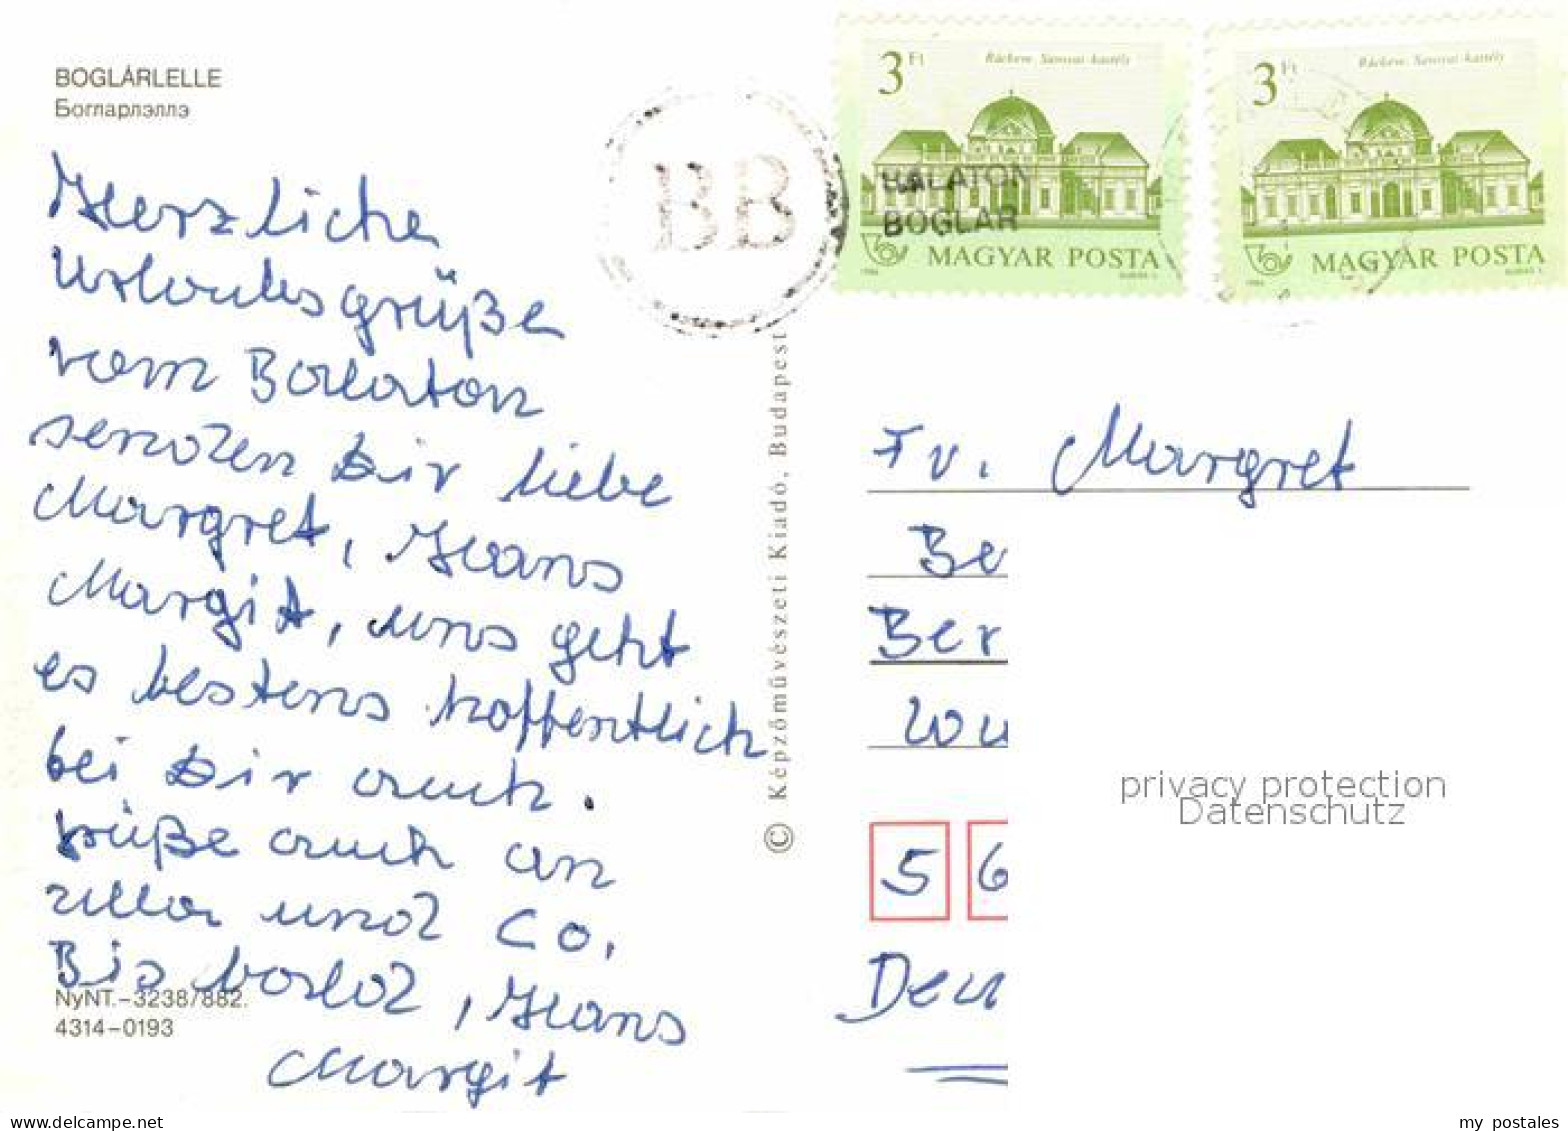 BOGLÁRLELLE
Богларлэллэ
Herzliche
Urlaubsgrüße
vom Balaton
senden Dir liebe
Margret, Hans
Margit, uns geht
es bestens hoffentlich
bei Dir auch.
Grüße auch an
Ulla und Co,
Bis bald, Hans
Margit
NyNT.–3238/882.
4314–0193
© Képzőművészeti Kiadó, Budapest
BB
BALATON
BOGLÁR
3 Ft
Ráckeve. Savoyai-kastély
MAGYAR POSTA
1986
3 Ft
Ráckeve. Savoyai-kastély
MAGYAR POSTA
1986
Fr. Margret
Be
Ber
Wu
5 6
Deu
privacy protection
Datenschutz
my postales